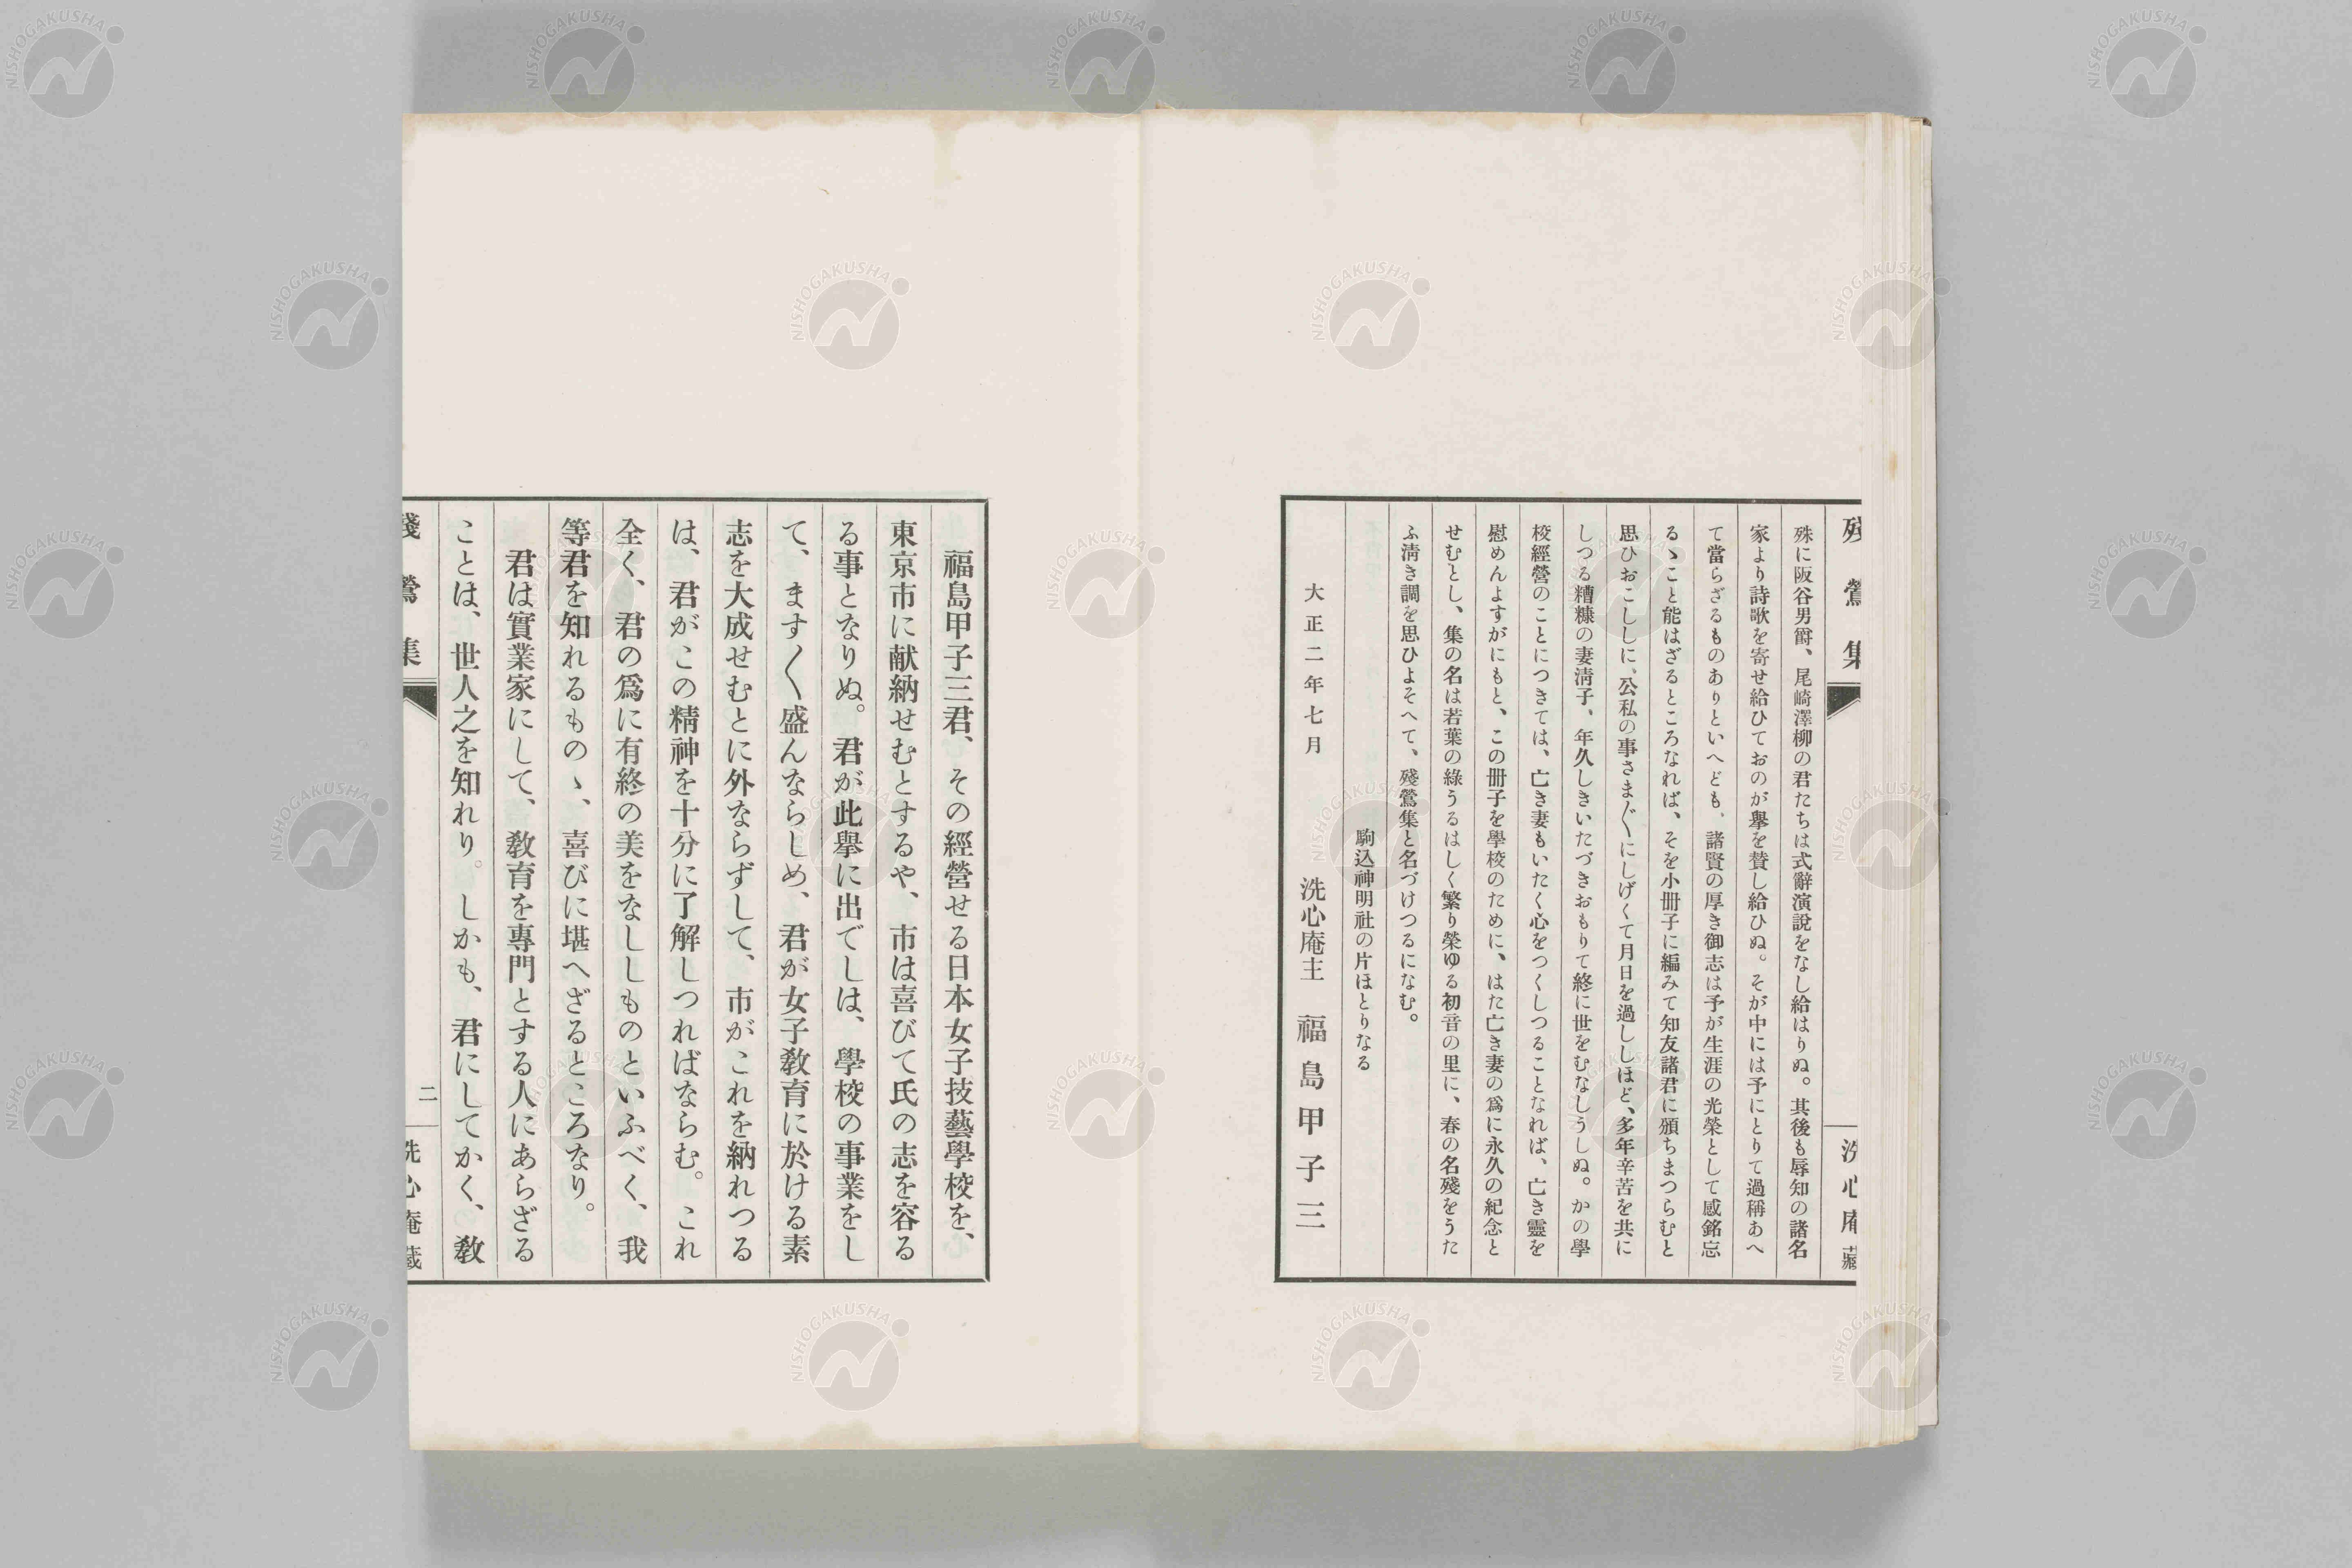 殘鶯集
洗心庵藏
殊に阪谷男爵、尾崎澤柳の君たちは式辭演說をなし給はりぬ。其後も辱知の諸名
家より詩歌を寄せ給ひておのが擧を賛し給ひぬ。そが中には予にとりて過稱あへ
て當らざるものありといへども、諸賢の厚き御志は予が生涯の光榮として感銘忘
るゝこと能はざるところなれば、そを小册子に編みて知友諸君に頒ちまつらむと
思ひおこししに、公私の事さま〴〵にしげくて月日を過ししほど、多年辛苦を共に
しつる糟糠の妻淸子、年久しきいたづきおもりて終に世をむなしうしぬ。かの學
校經營のことにつきては、亡き妻もいたく心をつくしつることなれば、亡き靈を
慰めんよすがにもと、この册子を學校のために、はた亡き妻の爲に永久の紀念と
せむとし、集の名は若葉の綠うるはしく繁り榮ゆる初音の里に、春の名殘をうた
ふ淸き調を思ひよそへて、殘鶯集と名づけつるになむ。
駒込神明社の片ほとりなる
大正二年七月 洗心庵主 福島甲子三
福島甲子三君、その經營せる日本女子技藝學校を、
東京市に献納せむとするや、市は喜びて氏の志を容る
る事となりぬ。君が此擧に出でしは、學校の事業をし
て、ます〱盛んならしめ、君が女子敎育に於ける素
志を大成せむとに外ならずして、市がこれを納れつる
は、君がこの精神を十分に了解しつればならむ。これ
全く、君の爲に有終の美をなししものといふべく、我
等君を知れるものゝ、喜びに堪へざるところなり。
君は實業家にして、敎育を專門とする人にあらざる
ことは、世人之を知れり。しかも、君にしてかく、敎
殘鶯集
二
洗心庵藏
NISHOGAKUSHA